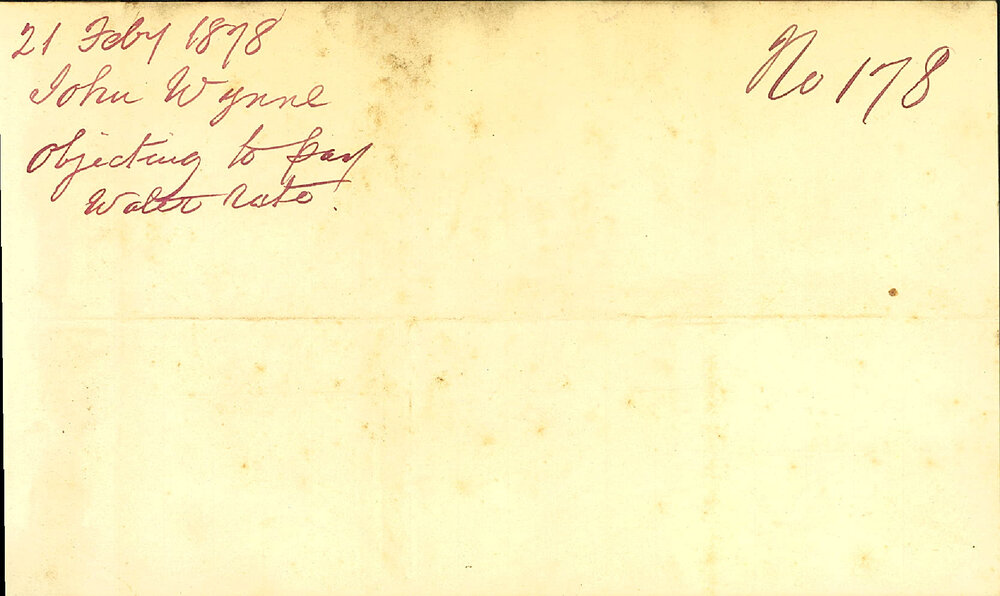 21 Feby 1878
John Wynne
Objecting to pay
Water rate.
No 178